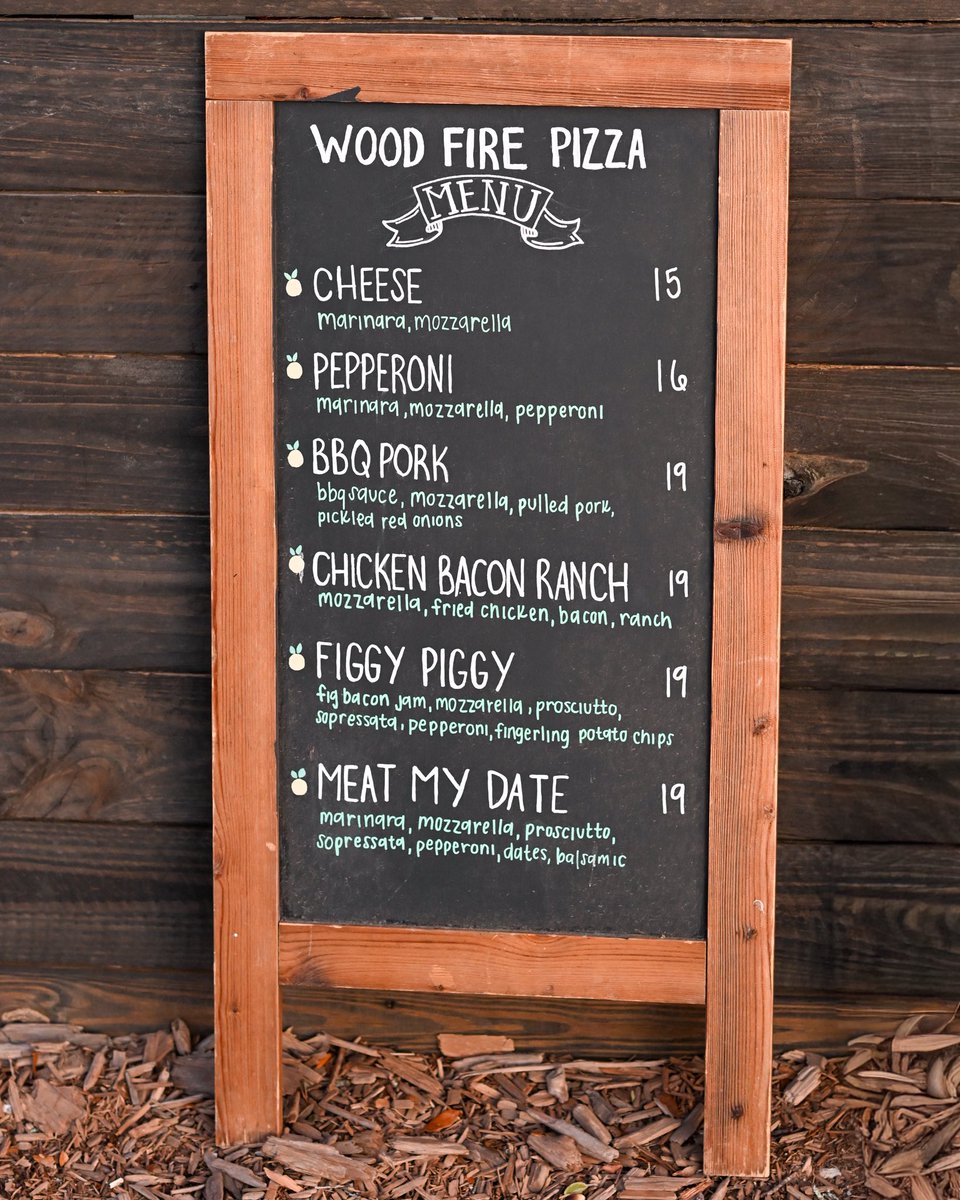 WOOD FIRE PIZZA
MENU
CHEESE 15
marinara, mozzarella
PEPPERONI 16
marinara, mozzarella, pepperoni
BBQ PORK 19
bbq sauce, mozzarella, pulled pork,
pickled red onions
CHICKEN BACON RANCH 19
mozzarella, fried chicken, bacon, ranch
FIGGY PIGGY 19
fig bacon jam, mozzarella, prosciutto,
sopressata, pepperoni, fingerling potato chips
MEAT MY DATE 19
marinara, mozzarella, prosciutto,
sopressata, pepperoni, dates, balsamic